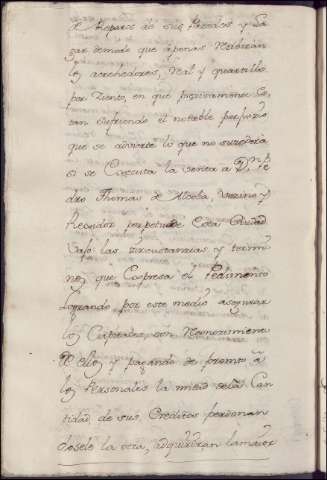 el Reparo de sus Predios y Lu
gar demodo que apenas Recibirán
los acrehedores, Real y quartillo
por Ziento, en que precisamente Es
tan sufriendo el notable perjuizio
que se advierte lo que no subzederá
si se Executa la venta a Dn Pe
dro Thomas de Alzola, vezino y
Rexidor perpetuo de Esta Ciudad
vajo las circunstanzias y termi
nos que Expresa el Pedimento
Logrando por este medio asegurar
los Capitales, con Reconozimiento
de ellos y pagando de promto á
los Personales la mitad de la Can
tidad de sus Creditos perdonan
dosele la otra, adquirirán la mayor